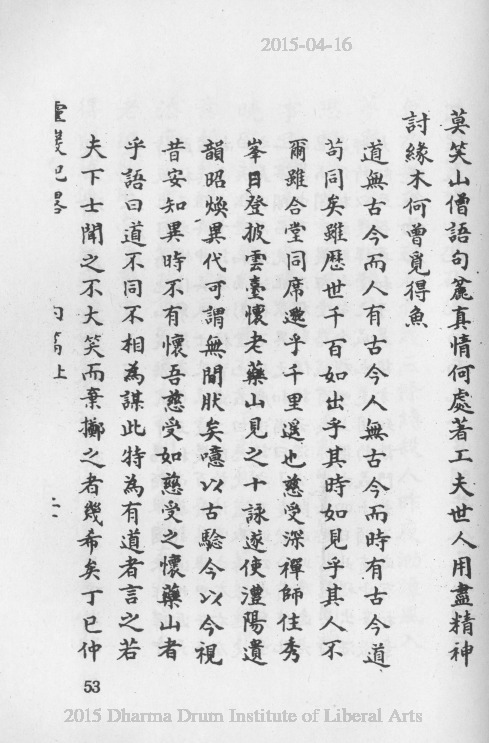 2015-04-16
莫笑山僧語句麄真情何處著工夫世人用盡精神
討緣木何曾覓得魚
道無古今而人有古今人無古今而時有古今道
苟同矣雖歷世千百如出乎其時如見乎其人不
爾雖合堂同席邈乎千里遠也慈受深禪師住秀
峯日登披雲臺懷老藥山見之十詠遂使澧陽遺
韻昭煥異代可謂無間然矣噫以古驗今以今視
昔安知異時不有懷吾慈受如慈受之懷藥山者
乎語曰道不同不相為謀此特為有道者言之若
夫下士聞之不大笑而棄擲之者幾希矣丁巳仲
靈巖記略 內篇上
53
2015 Dharma Drum Institute of Liberal Arts